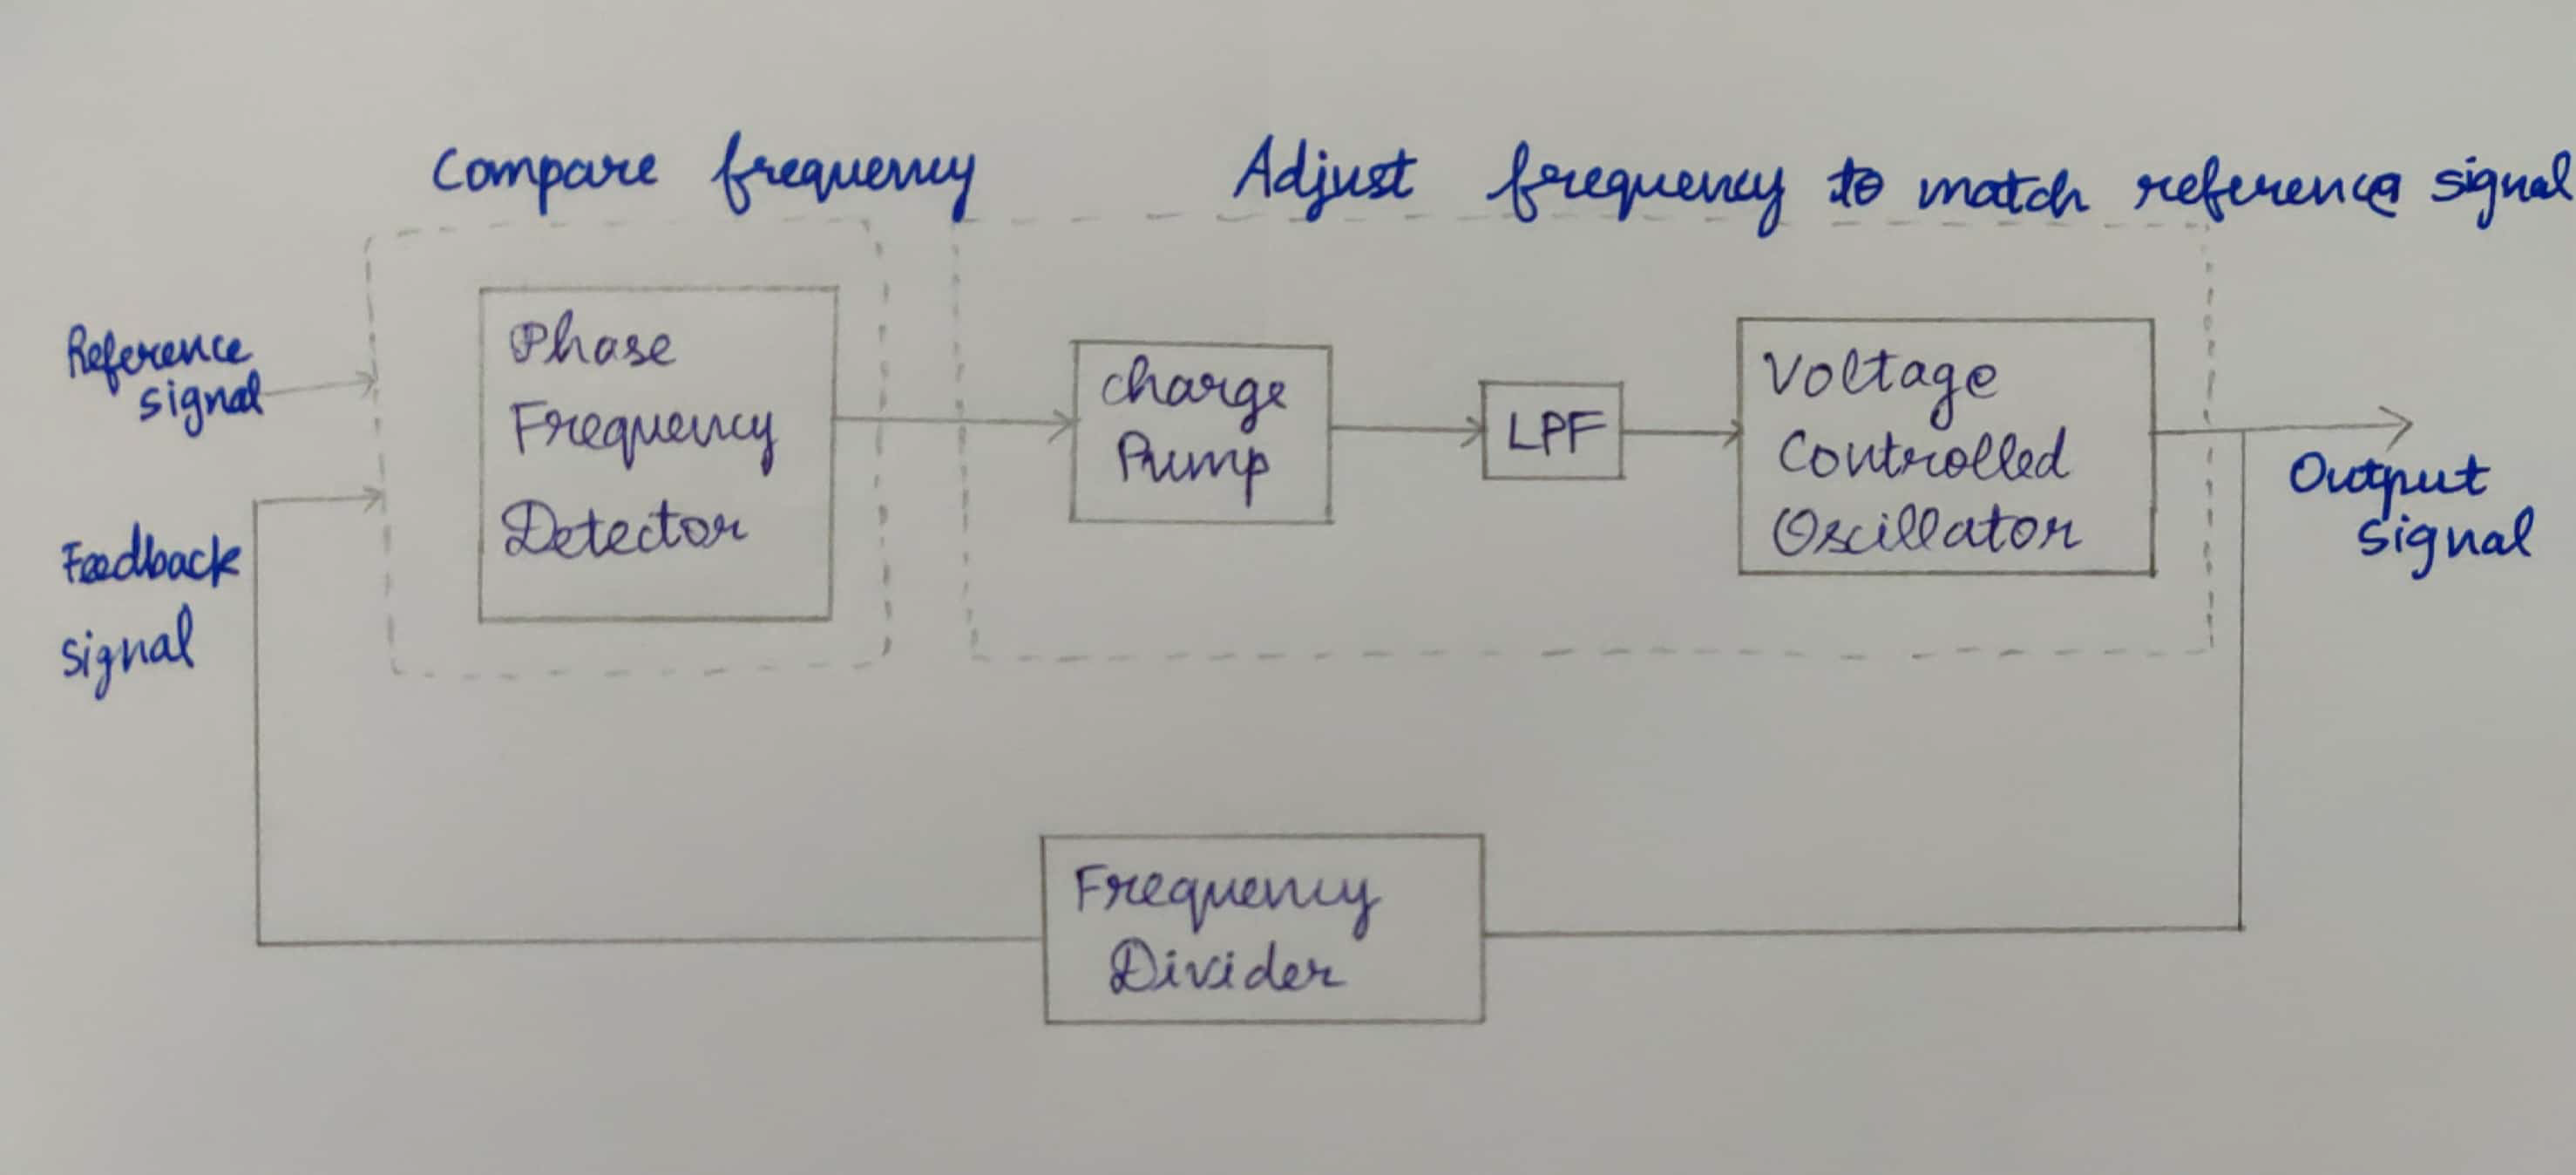 Compare frequency
Adjust frequency to match reference signal
Reference
signal
Phase
Frequency
Detector
Charge
Pump
LPF
Voltage
Controlled
Oscillator
Output
signal
Feedback
signal
Frequency
Divider